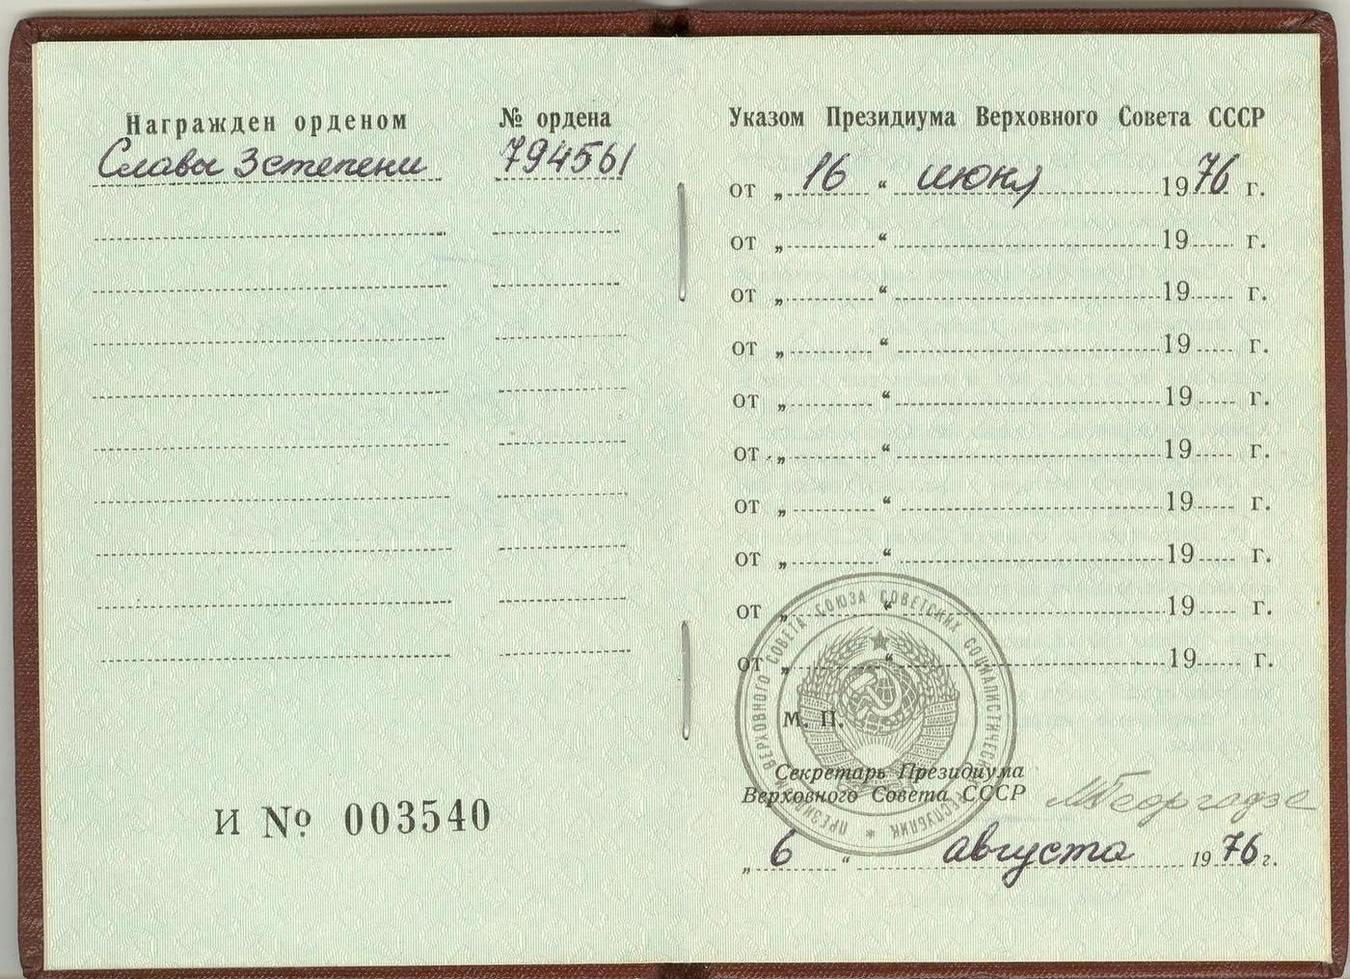 Награжден орденом
Славы 3 степени
№ ордена
794561
И № 003540
Указом Президиума Верховного Совета СССР
от „ 16 “ июня 1976 г.
от „ “ 19 г.
от „ “ 19 г.
от „ “ 19 г.
от „ “ 19 г.
от „ “ 19 г.
от „ “ 19 г.
от „ “ 19 г.
от „ “ 19 г.
от „ “ 19 г.
ПРЕЗИДИУМ ВЕРХОВНОГО СОВЕТА СОЮЗА СОВЕТСКИХ СОЦИАЛИСТИЧЕСКИХ РЕСПУБЛИК
М. П.
Секретарь Президиума
Верховного Совета СССР
МГеоргадзе
„ 6 “ августа 1976 г.